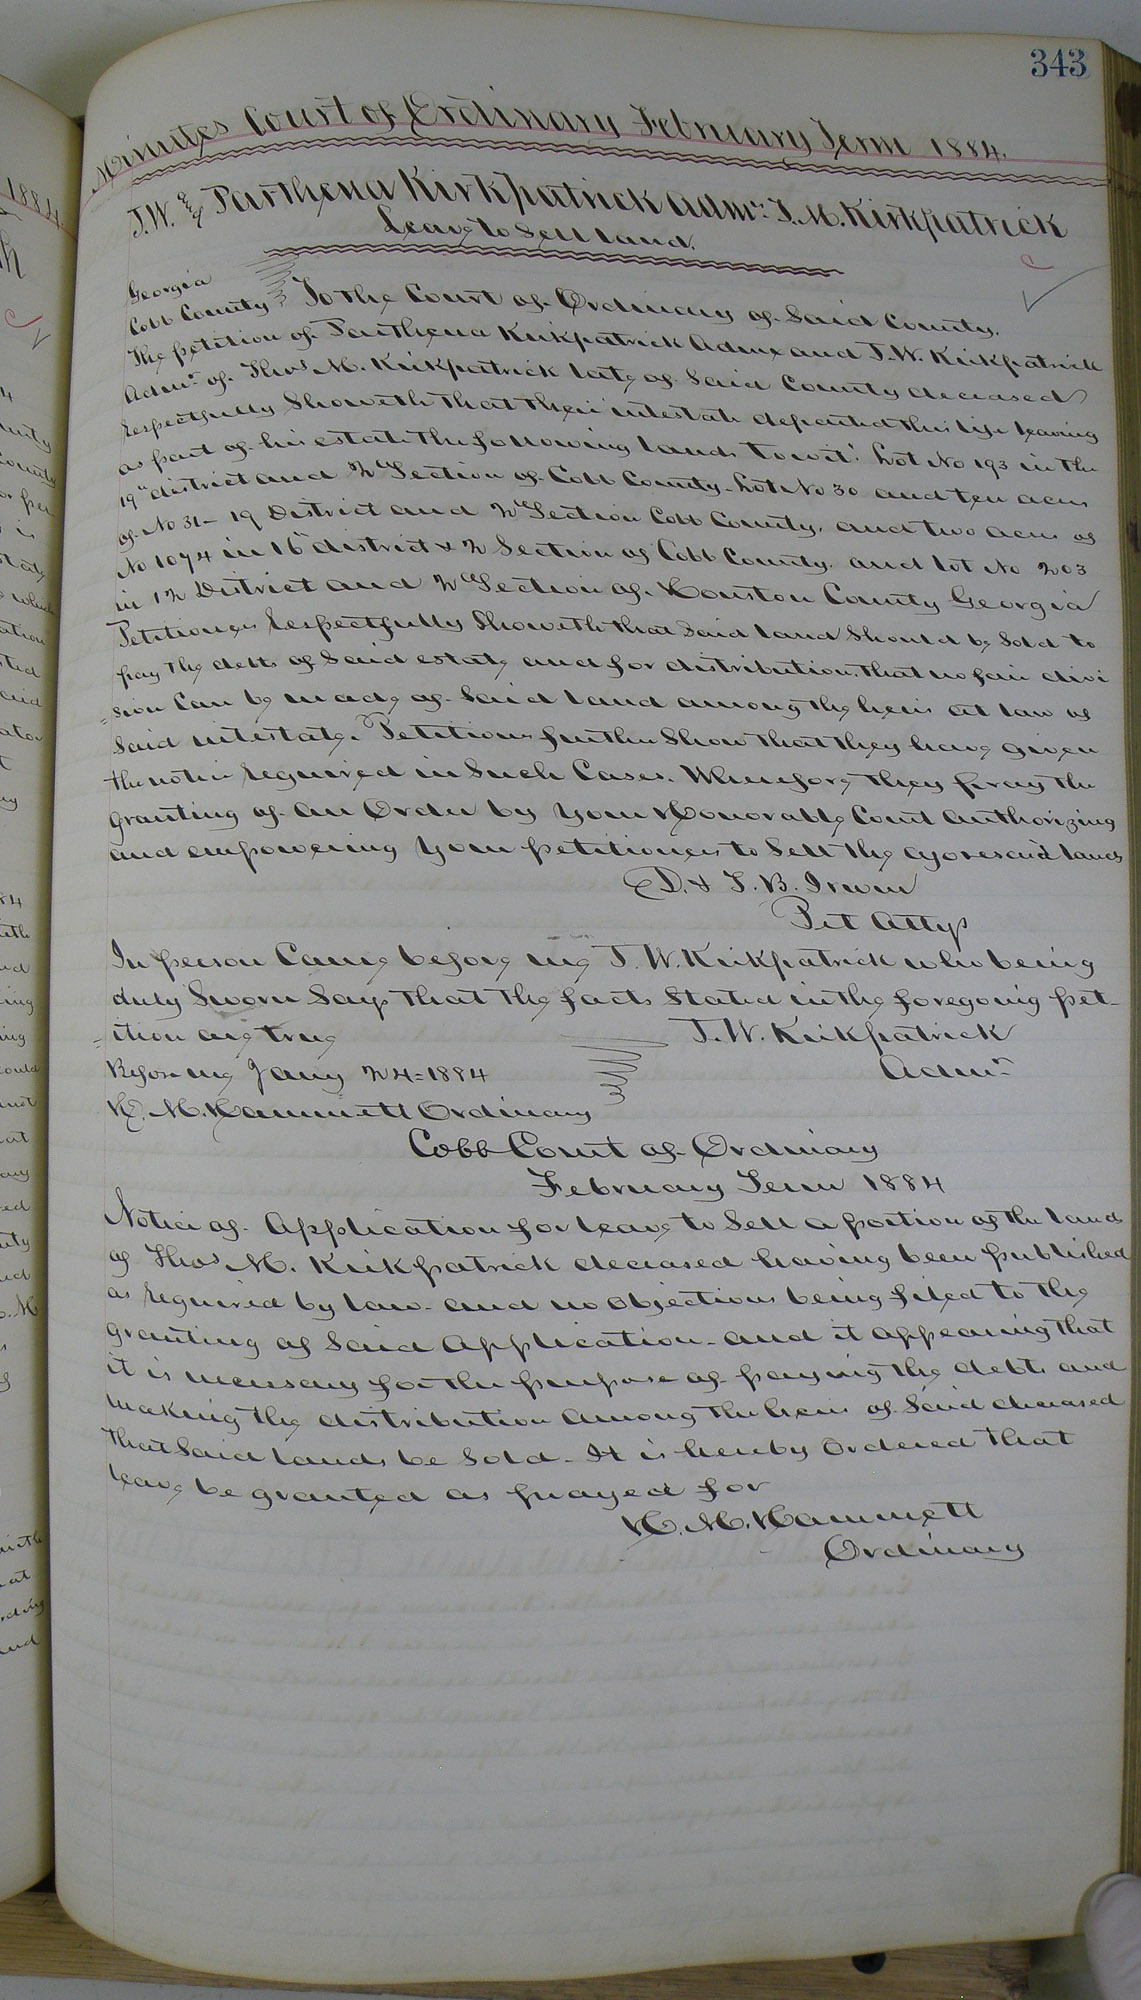 343
Minutes Court of Ordinary February Term 1884.
J.W. & Parthena Kirkpatrick Admr. T.M. Kirkpatrick
Leave to Sell land.
Georgia
Cobb County To the Court of Ordinary of Said County.
The petition of Parthena Kirkpatrick Admx and J.W. Kirkpatrick
Admr. of Thos M. Kirkpatrick late of Said County deceased
respectfully Showeth that their intestate departed this life leaving
as part of his estate the following lands To wit: Lot No 193 in the
19th district and 2d Section of Cobb County. Lot No 30 and ten acres
of No 31 - 19 District and 2d Section Cobb County. and two acres of
No 1074 in 16 district & 2 Section of Cobb County. and lot No 203
in 12 District and 2d Section of Houston County Georgia
Petitioners respectfully Showeth that Said land Should be Sold to
pay the debts of Said estate and for distribution, that no fair divi
=sion Can be made of Said land among the heirs at law of
Said intestate. Petitioners further Show that they have given
the notice required in Such Cases. Wherefore they pray the
granting of an Order by your Honorable Court authorizing
and empowering your petitioners to Sell the aforesaid lands
D. & T. B. Irwin
Pet Attys
In person Came before me J. W. Kirkpatrick who being
duly Sworn Says that the facts Stated in the foregoing pet-
=ition are true J.W. Kirkpatrick
Before me Jany 24=1884 Admr.
H. M. Hammett Ordinary
Cobb Court of Ordinary
February Term 1884
Notice of Application for leave to Sell a portion of the lands
of Thos M. Kirkpatrick deceased having been published
as required by law- and no objections being filed to the
granting of Said Application- and it appearing that
it is necessary for the purpose of paying the debts and
making the distribution among the heirs of Said deceased
that Said lands be Sold- It is hereby Ordered that
leave be granted as prayed for
H. M. Hammett
Ordinary